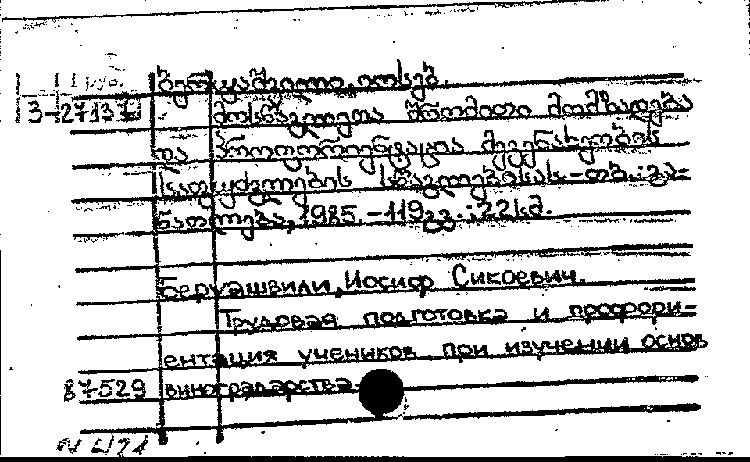 ბერუაშვილი, იოსებ.
3-271371
მოსწავლეთა შრომითი მომზადება
და პროფორიენტაცია მევენახეობის
საფუძვლების სწავლებისას.-თბ.:გა-
ნათლება, 1985.-119გვ.:22სმ.
Беруашвили, Иосиф Сикоевич.
Трудовая подготовка и профори-
ентация учеников при изучении основ
87-529 виноградарства.